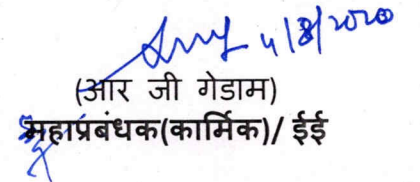 4/8/2020
(आर जी गेडाम)
महाप्रबंधक(कार्मिक)/ ईई